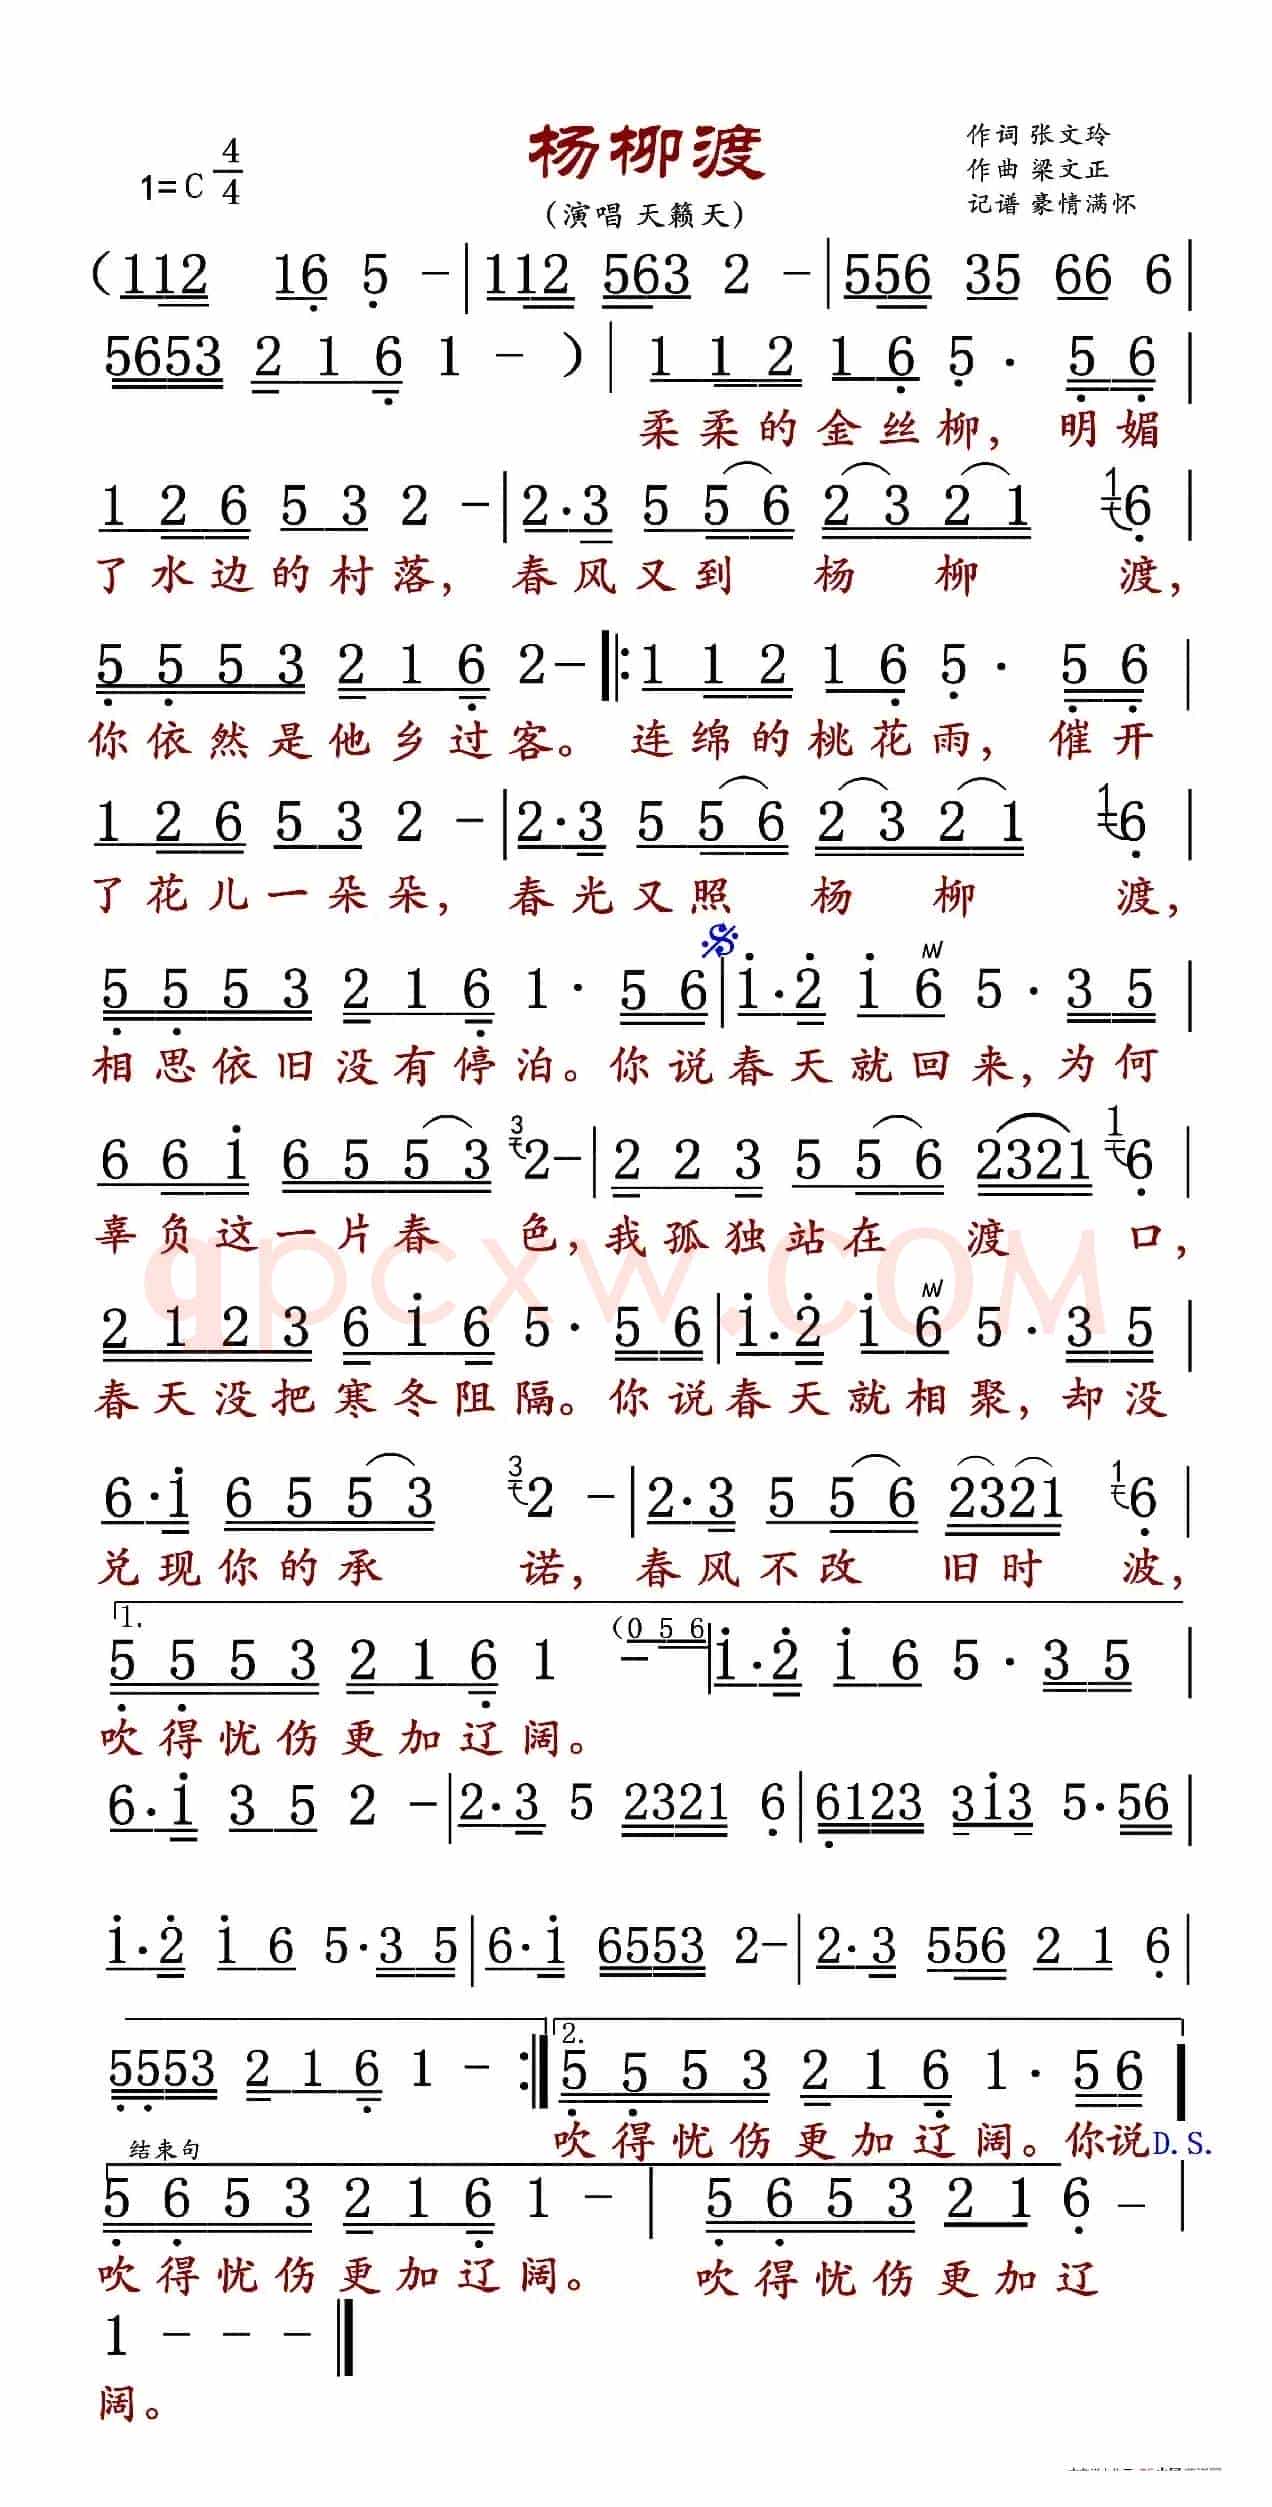 杨柳渡
1=C 4/4
作词 张文玲
作曲 梁文正
(演唱 天籁天)
记谱 豪情满怀
(112 16 5 -|112 563 2 -|556 35 66 6|
5653 2 1 6 1 - )|1 1 2 1 6 5 · 5 6|
柔柔的金丝柳，明媚
1 2 6 5 3 2 -|2·3 5 5 6 2 3 2 1 1 6|
了水边的村落，春风又到杨柳渡，
5 5 5 3 2 1 6 2-‖:1 1 2 1 6 5 · 5 6|
你依然是他乡过客。连绵的桃花雨，催开
1 2 6 5 3 2 -|2·3 5 5 6 2 3 2 1 1 6|
了花儿一朵朵，春光又照杨柳渡，
5 5 5 3 2 1 6 1 · 5 6|1·2 1 6 5 · 3 5|
相思依旧没有停泊。你说春天就回来，为何
6 6 1 6 5 5 3 3 2-|2 2 3 5 5 6 2321 1 6|
辜负这一片春色，我孤独站在渡口，
2 1 2 3 6 1 6 5 · 5 6|1·2 1 6 5 · 3 5|
春天没把寒冬阻隔。你说春天就相聚，却没
6·1 6 5 5 3 3 2 -|2·3 5 5 6 2321 1 6|
兑现你的承诺，春风不改旧时波，
1.
5 5 5 3 2 1 6 1 - (0 5 6|1·2 1 6 5 · 3 5|
吹得忧伤更加辽阔。
6·1 3 5 2 -|2·3 5 2321 6|6123 313 5·56|
1·2 1 6 5·3 5|6·1 6553 2-|2·3 556 2 1 6|
5553 2 1 6 1 - :‖2. 5 5 5 3 2 1 6 1 · 5 6|
吹得忧伤更加辽阔。你说D.S.
结束句
5 6 5 3 2 1 6 1 - | 5 6 5 3 2 1 6 - |
吹得忧伤更加辽阔。吹得忧伤更加辽
1 - - - ‖
阔。
qpcxw.COM